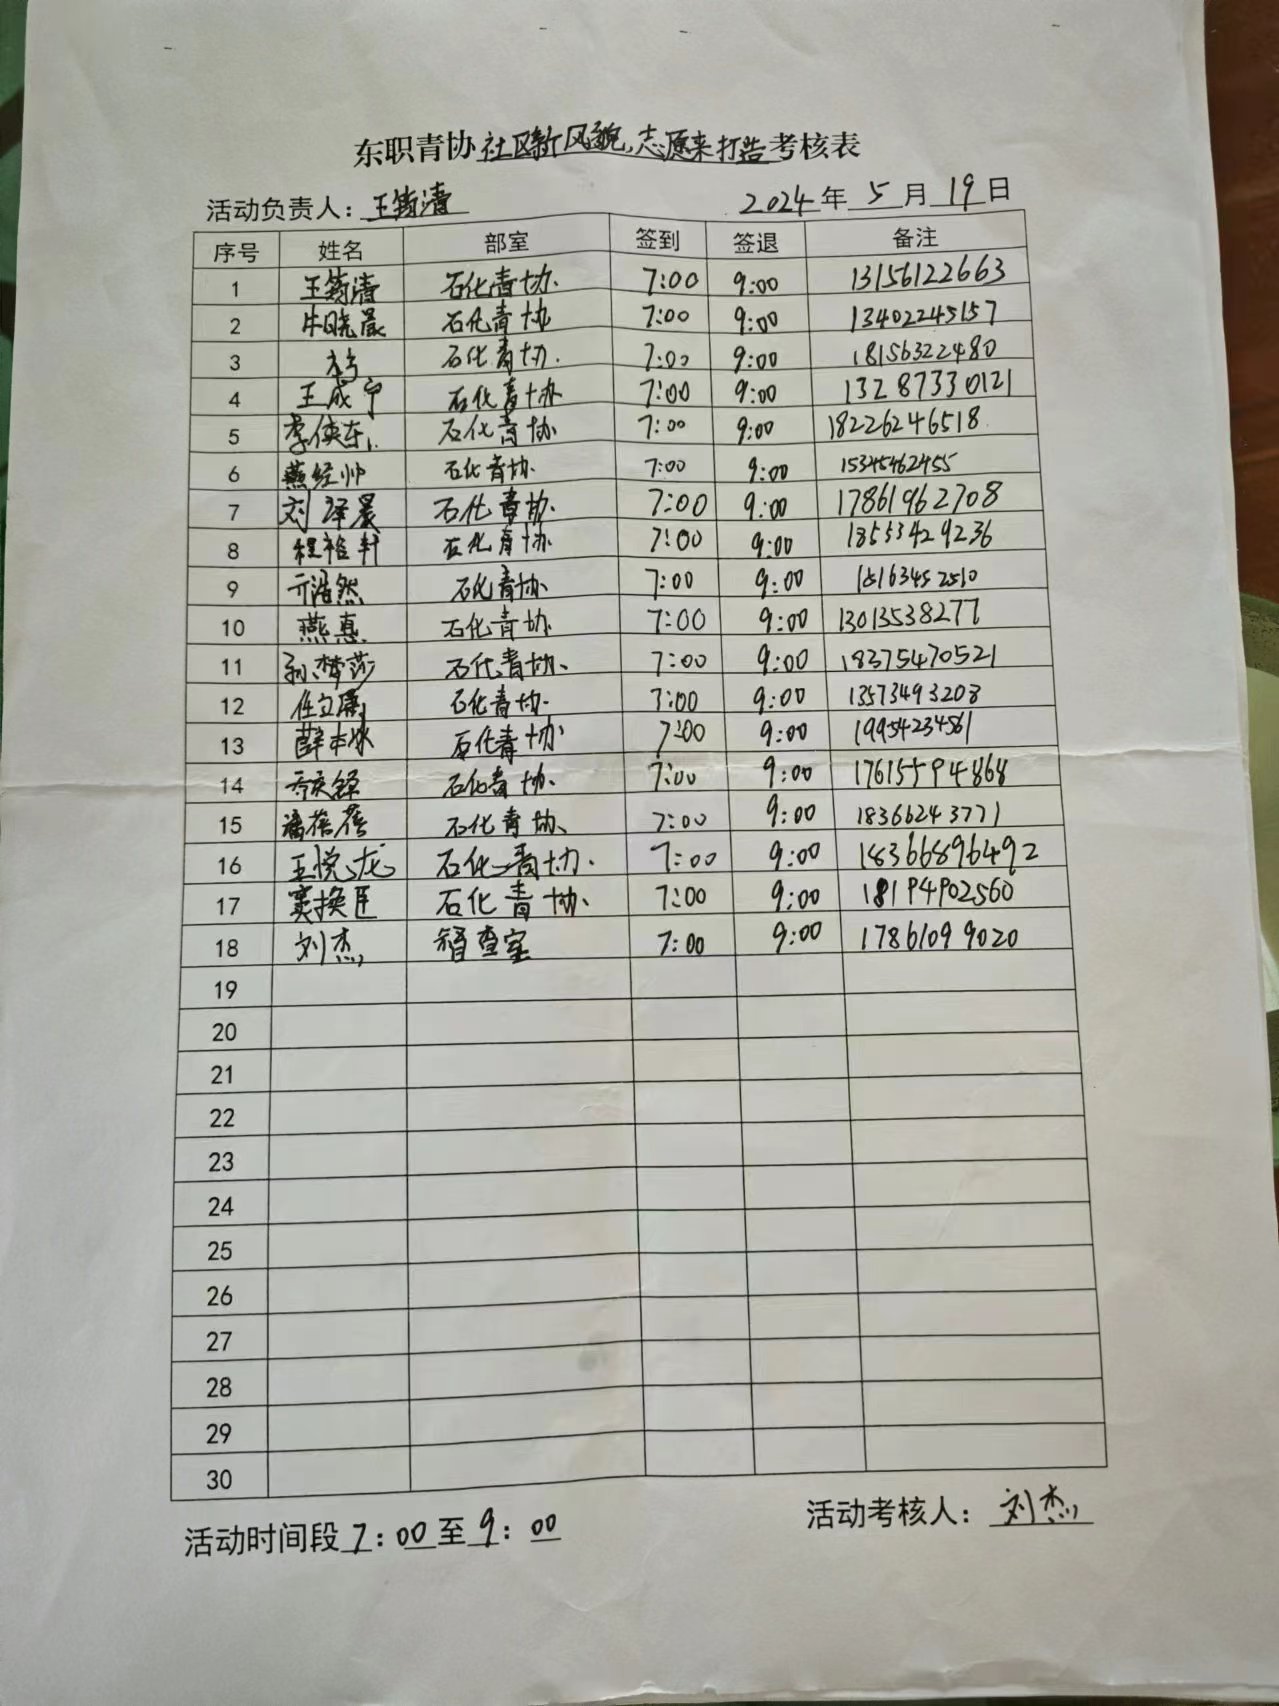 东职青协社区新风貌,志愿来打造考核表
活动负责人：王筠清 2024年5月19日
序号 姓名 部室 签到 签退 备注
1 王筠清 石化青协 7:00 9:00 13156122663
2 牛晓晨 石化青协 7:00 9:00 13402245157
3 石化青协 7:00 9:00 18156322480
4 王成宁 石化青协 7:00 9:00 13287330121
5 李侠东 石化青协 7:00 9:00 18226246518
6 燕经帅 石化青协 7:00 9:00 15345462455
7 刘泽晨 石化青协 7:00 9:00 17861962708
8 程裕轩 石化青协 7:00 9:00 18553429236
9 亓浩然 石化青协 7:00 9:00 15163452510
10 燕惠 石化青协 7:00 9:00 13013538277
11 孙梦莎 石化青协 7:00 9:00 18375470521
12 任立康 石化青协 7:00 9:00 13573493208
13 薛本冰 石化青协 7:00 9:00 19954234561
14 石化青协 7:00 9:00 17615594868
15 潘蓓蓓 石化青协 7:00 9:00 18366243771
16 王悦龙 石化青协 7:00 9:00 18366896492
17 窦换臣 石化青协 7:00 9:00 18194902560
18 刘杰 督查室 7:00 9:00 17861099020
19
20
21
22
23
24
25
26
27
28
29
30
活动时间段 7：00至9：00 活动考核人：刘杰